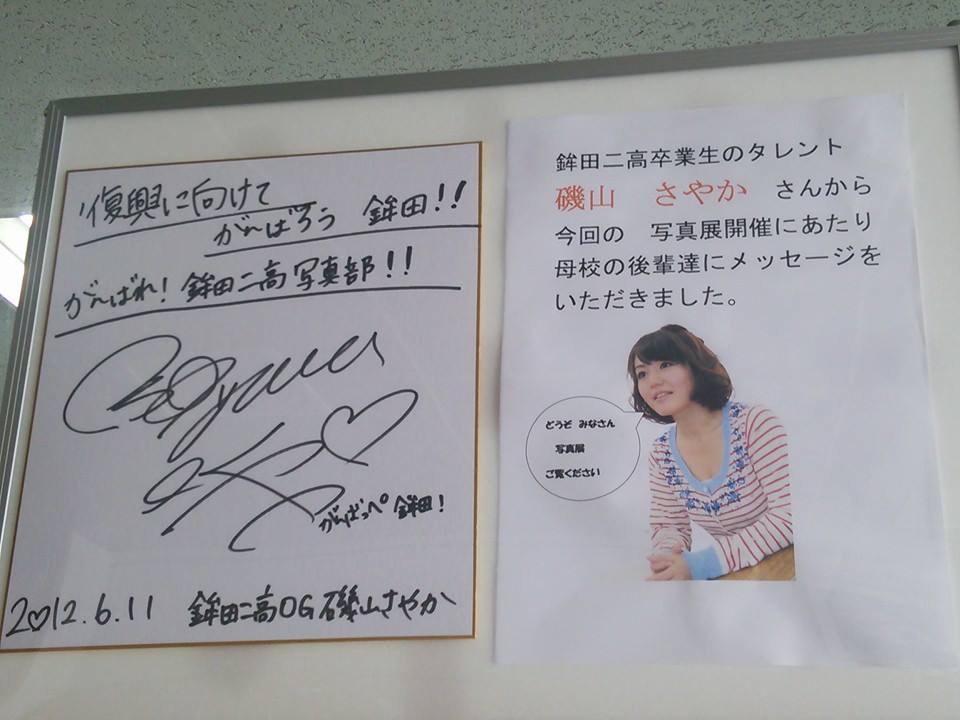 復興に向けて
がんばろう 鉾田!!
がんばれ! 鉾田二高写真部!!
がんばっぺ 鉾田!
2♡12.6.11 鉾田二高OG 磯山さやか
鉾田二高卒業生のタレント
磯山 さやか さんから
今回の 写真展開催にあたり
母校の後輩達にメッセージを
いただきました。
どうぞ みなさん
写真展
ご覧ください